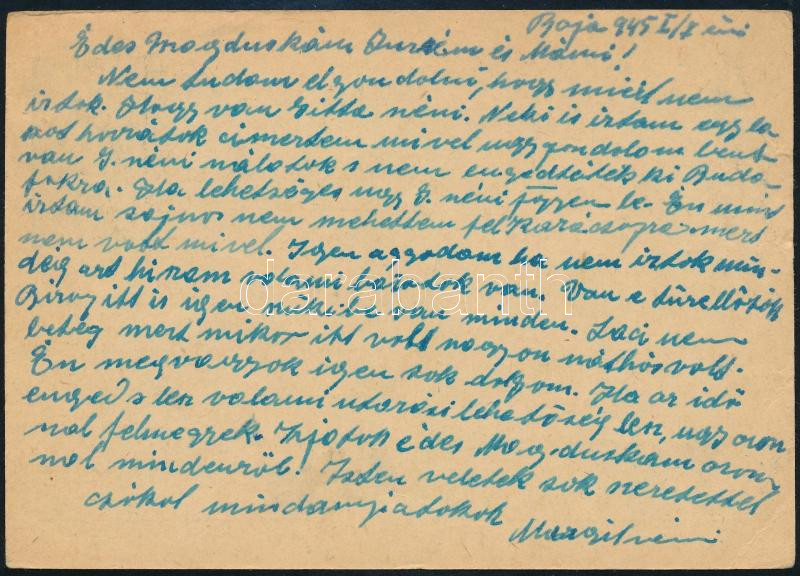 Baja 945 I/7 én
Édes Magduskám Purzsém és Mámi!
Nem tudom elgondolni, hogy miért nem
irtok. Hogy van Gitta néni. Neki is irtam egy la
pot hozzátok cimertem mivel ugy gondolom bent
van G. néni nálatok s nem engedtétek ki Buda-
fokra. Ha lehetséges ugy G. néni jöjjen le. Én mint
irtam sajnos nem mehettem fel karácsonyra mert
nem volt mivel. Igen aggodom ha nem irtok min-
dég azt hiszem valami bajotok van. Van e tüzelőtök
Bizony itt is igen nehéz van minden. Laci nem
beteg mert mikor itt volt nagyon náthás volt.
Én megvagyok igen sok dolgom. Ha az idő
enged s lesz valami utazási lehetőség lesz, ugy azon
nal felmegyek. Irjatok édes Magduskám azon-
nal mindenről. Isten veletek sok szeretettel
csókol mindannyiatokat
Margit néni
darabanth